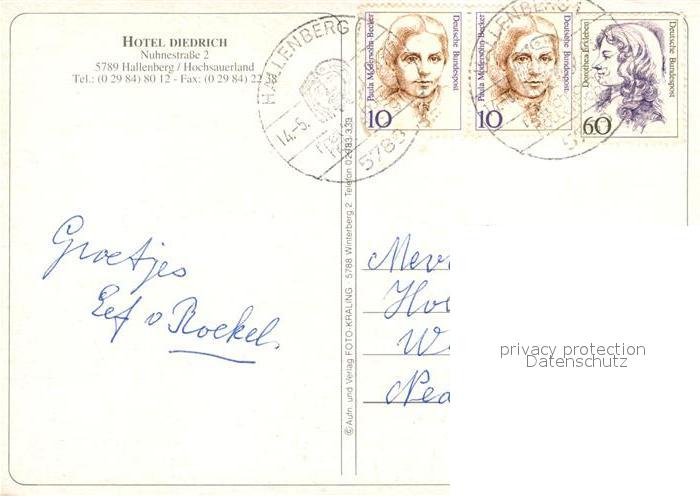 HOTEL DIEDRICH
Nuhnestraße 2
5789 Hallenberg / Hochsauerland
Tel.: (0 29 84) 80 12 - Fax: (0 29 84) 22 38
HALLENBERG
14.-5.
5789
Paula Modersohn-Becker
Deutsche Bundespost
10
Paula Modersohn-Becker
Deutsche Bundespost
10
HALLENBERG 1
Dorothea Erxleben
Deutsche Bundespost
60
Groetjes
Eef v Roekel.
© Aufn. und Verlag FOTO-KRALING 5788 Winterberg 2 Telefon
Mev
Hoe
W
Ned
privacy protection
Datenschutz